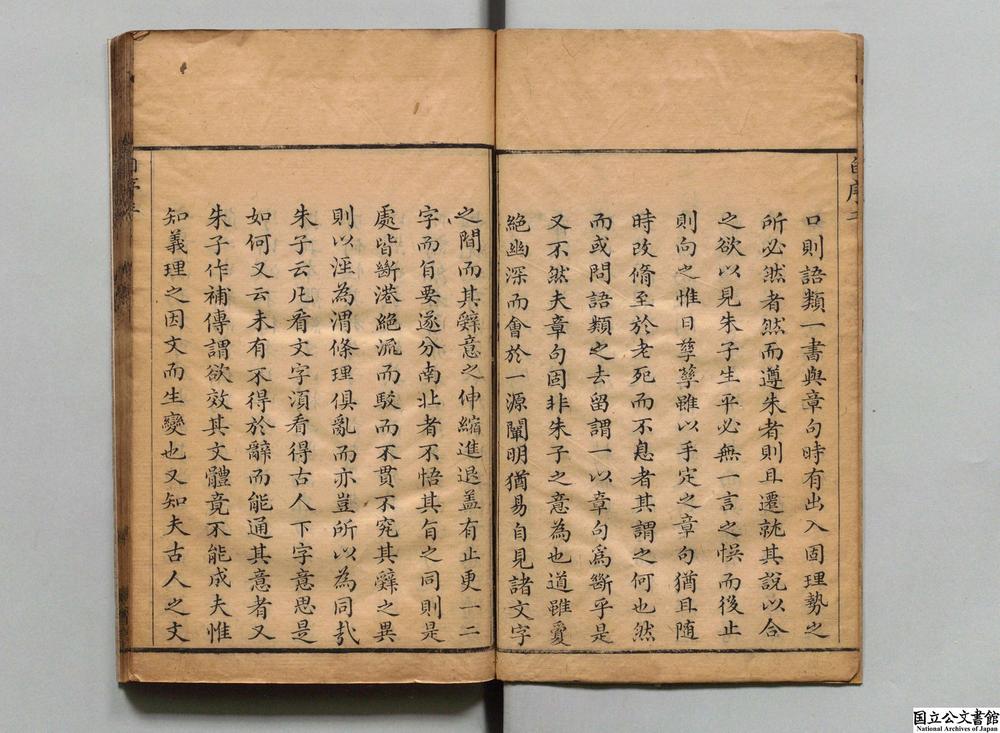 自序二
口則語類一書與章句時有出入固理勢之
所必然者然而遵朱者則且遷就其說以合
之欲以見朱子生平必無一言之悞而後止
則向之惟日孳孳雖以手定之章句猶且隨
時改脩至於老死而不息者其謂之何也然
而或問語類之去留謂一以章句爲斷乎是
又不然夫章句固非朱子之意為也道雖
絕幽深而會於一源闡明猶易自見諸文字
之間而其辭意之伸縮進退盖有止更一二
字而旨要遂分南北者不悟其旨之同則是
處皆斷港絕流而駁而不貫不究其辭之異
則以涇為渭條理俱亂而亦豈所以為同㢤
朱子云凡看文字湏看得古人下字意思是
如何又云未有不得於辭而能通其意者又
朱子作補傳謂欲效其文體竟不能成夫惟
知義理之因文而生變也又知夫古人之文
國立公文書館
National Archives of Japan